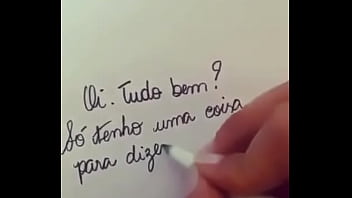 Oi. Tudo bem?
Só tenho uma coisa
para dizer